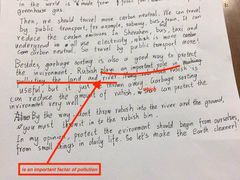 in the world is made from
greenhouse gas.
Then, we should travel more carbon neutral. We can travel
by public transport, for example, subway, bus, train. It can
reduce the carbon emission. In Shenzhen, bus, taxi and
underground is all use electricity which is more
carbon neutral. So travel by public transport more.
Besides, garbage sorting is also a good way to protect
the invironment. Rubish plays an important role in
polluting the land and river. rubish is
useful, but it just thrown away. Garbage sorting
can reduce the amount of rubish, that can protect the
invironment very well.
By the way, don't throw rubish into the river and the ground,
you must throw it to the rubish bin.
In my opinion, protect the evironment should began from ourselves,
from small things in daily life. So let's make the Earth cleaner!
is an important factor of pollution